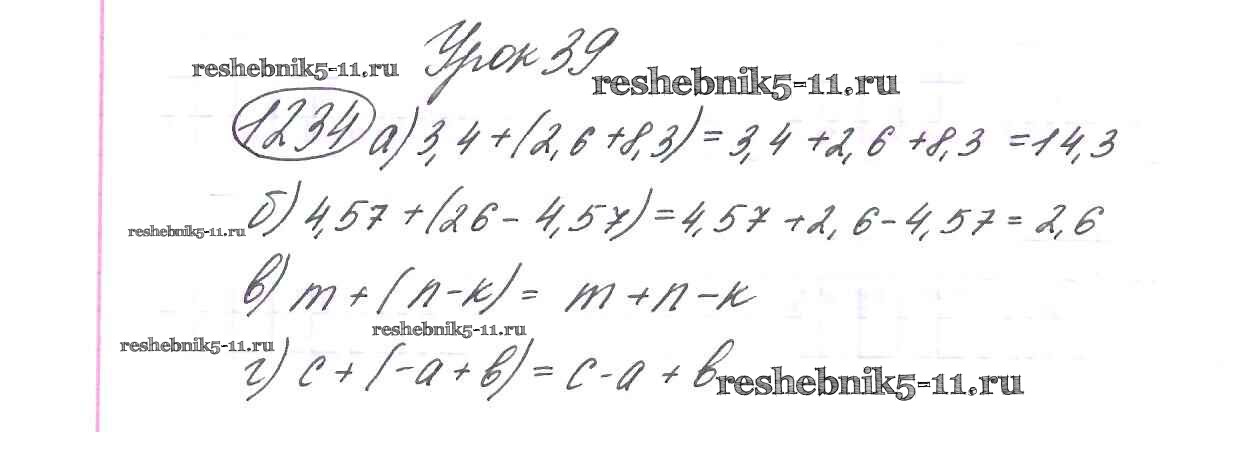 Урок 39
reshebnik5-11.ru
reshebnik5-11.ru
1234 а) 3,4 + (2,6 + 8,3) = 3,4 + 2,6 + 8,3 = 14,3
б) 4,57 + (26 - 4,57) = 4,57 + 2,6 - 4,57 = 2,6
reshebnik5-11.ru
в) m + (n - k) = m + n - k
reshebnik5-11.ru
reshebnik5-11.ru
г) c + (-a + в) = c - a + в
reshebnik5-11.ru